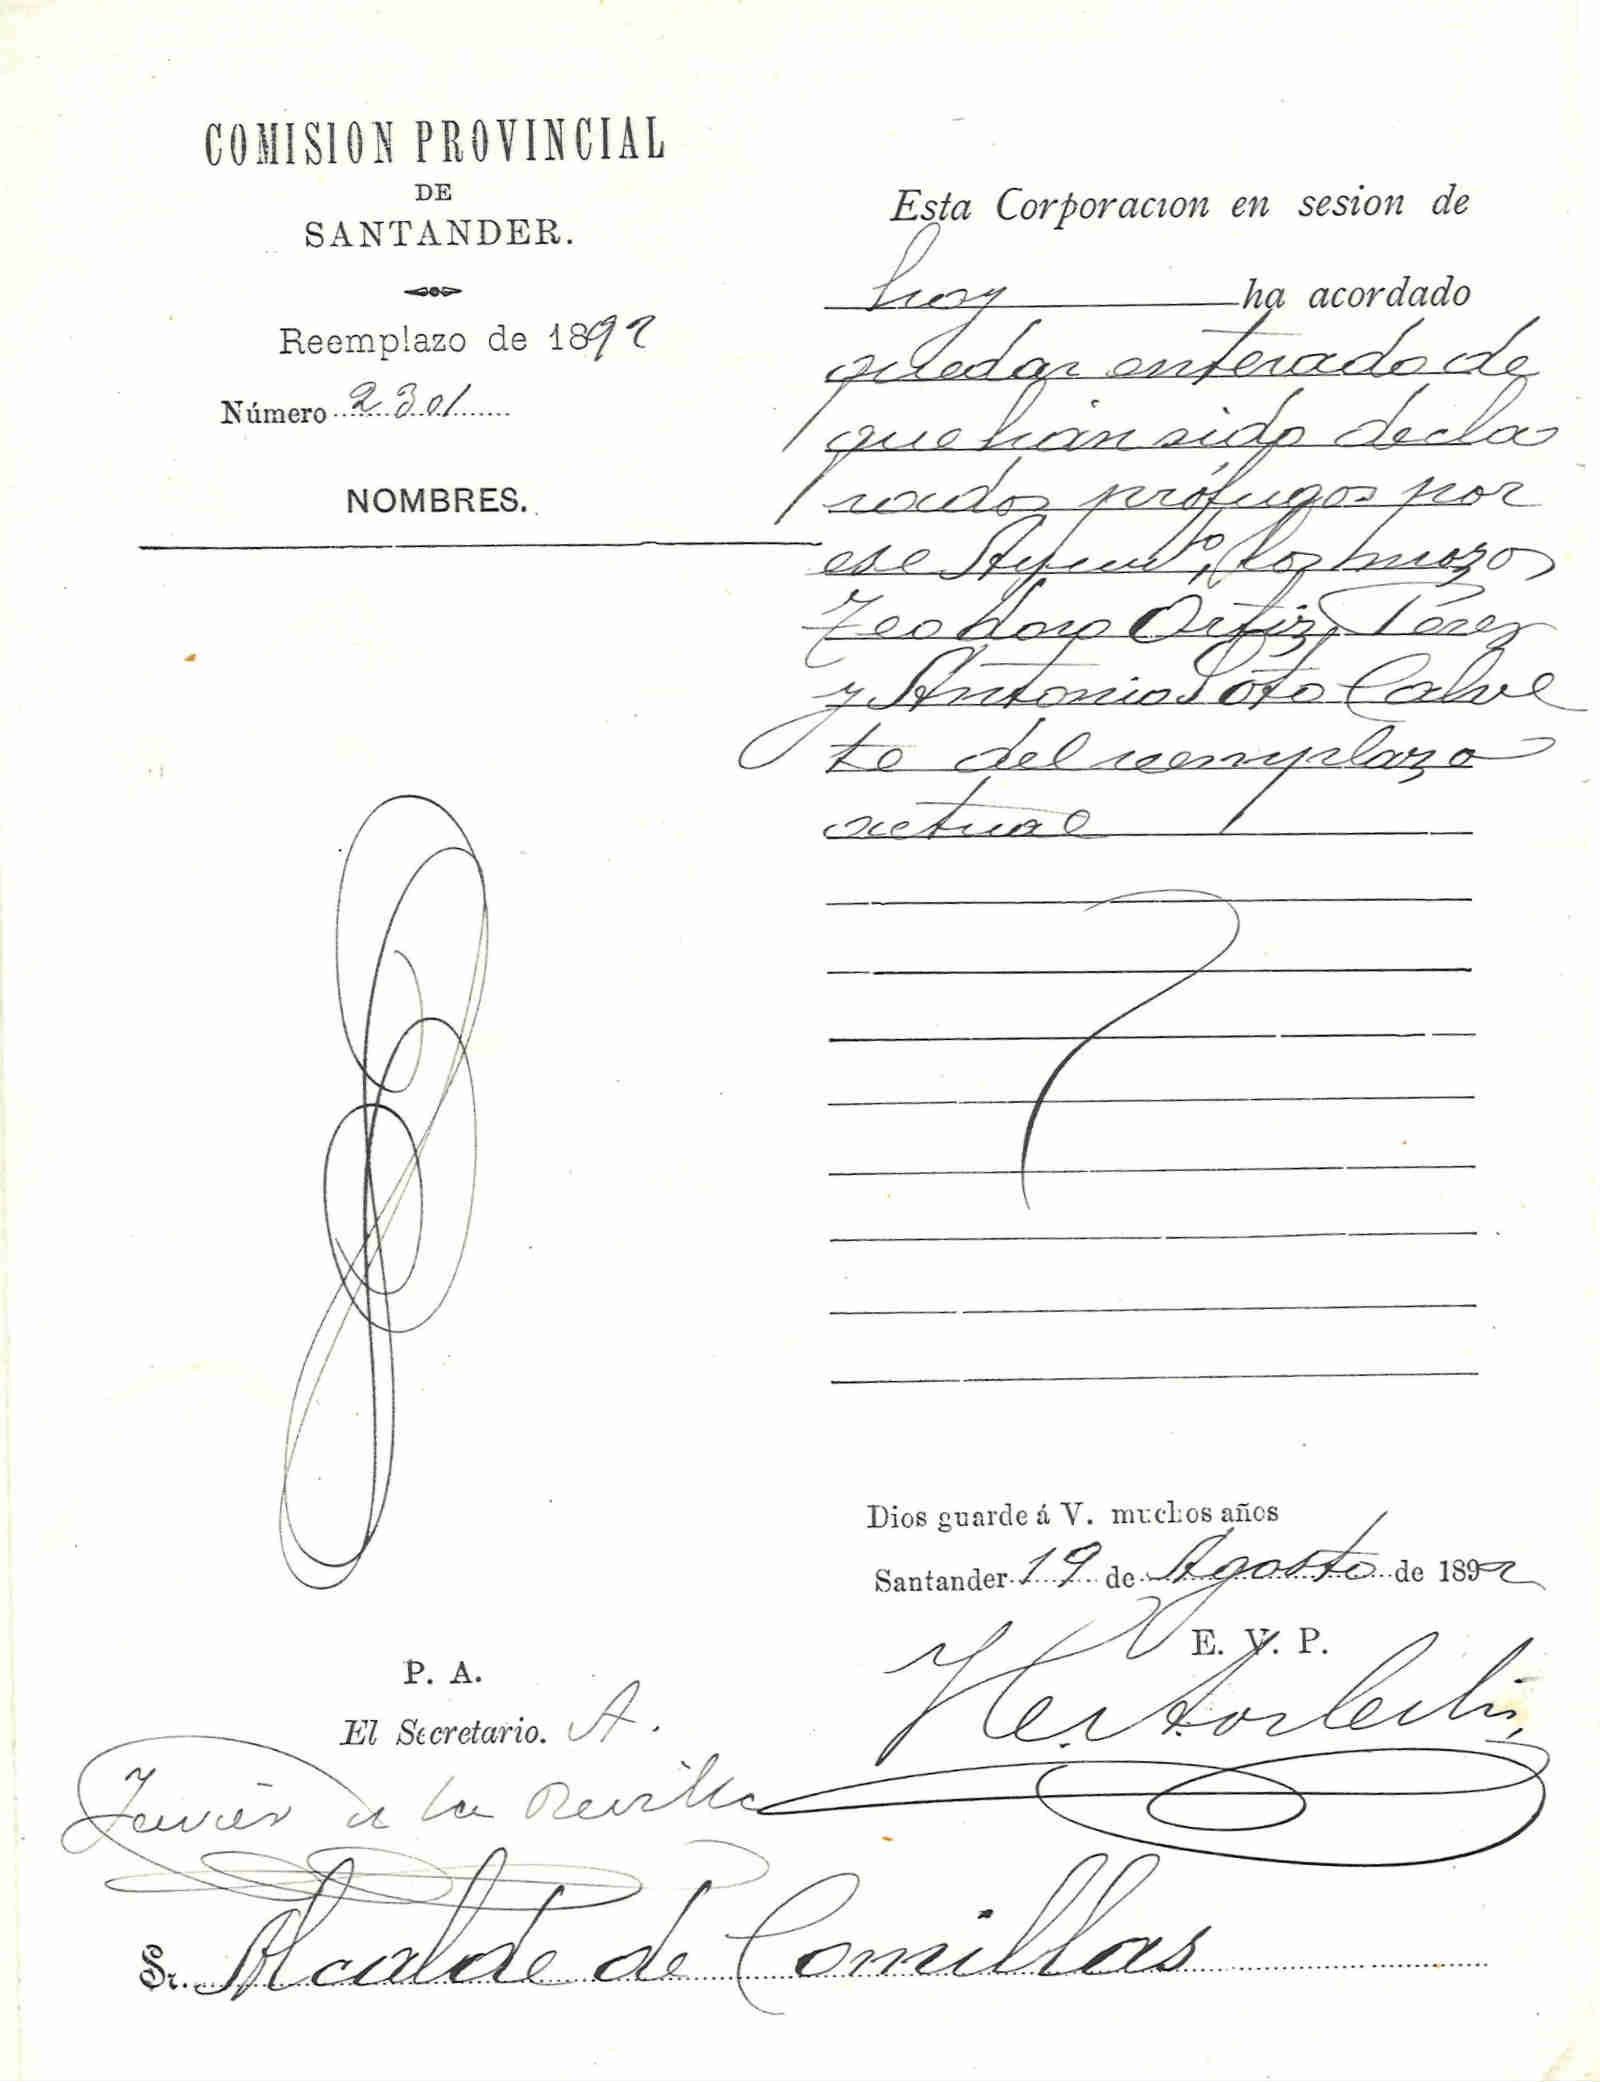 COMISION PROVINCIAL
DE
SANTANDER.
Reemplazo de 1892
Número 2301
NOMBRES.
Esta Corporacion en sesion de
hoy ha acordado
quedar enterado de
que han sido decla
rados prófugos por
ese Ayunt.º, los mozos
Teodoro Ortiz Pérez
y Antonio Soto Calve
te del reemplazo
actual
Dios guarde á V. muchos años
Santander 19 de Agosto de 1892
E. V. P.
P. A.
El Secretario. A.
Javier de la Revilla
Sr. Alcalde de Comillas